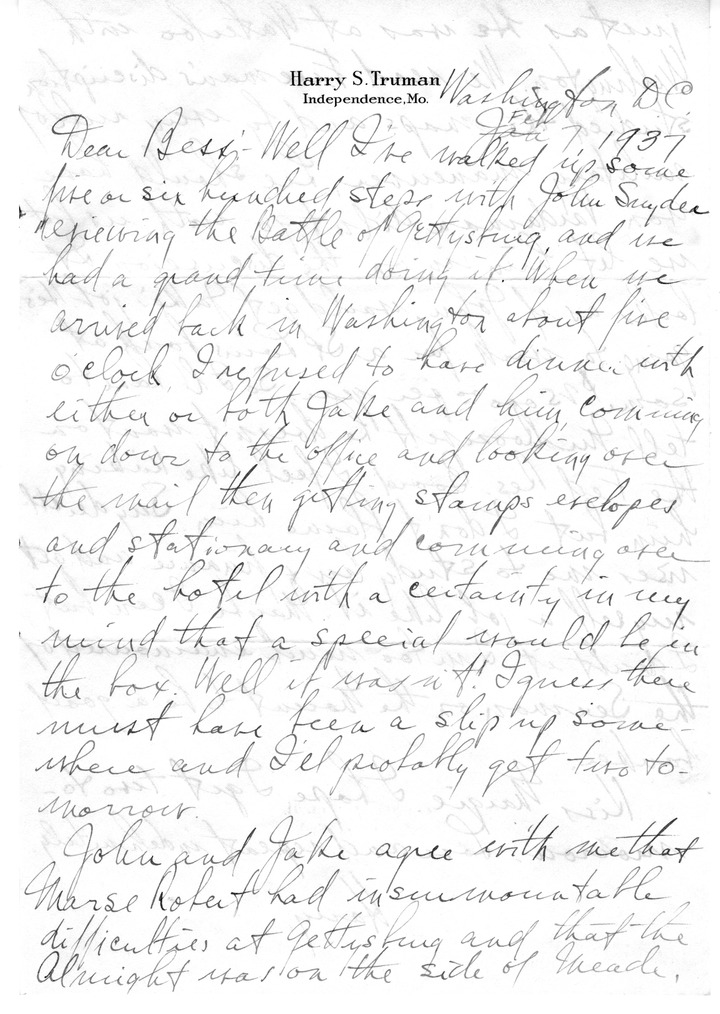 Harry S. Truman
Independence, Mo.
Washington, D.C.
Feb
Jan 7, 1937
Dear Bess;- Well I've walked up some
five or six hundred steps with John Snyder
reviewing the Battle of Gettysburg, and we
had a grand time doing it. When we
arrived back in Washington about five
o'clock I refused to have dinner with
either or both Jake and him, comming
on down to the office and looking over
the mail then getting stamps evelopes
and stationary and comming over
to the hotel with a certainty in my
mind that a special would be in
the box. Well it wasn't! I guess there
must have been a slip up some-
where and I'l probably get two to-
morrow.
John and Jake agree with me that
Marse Robert had insurmountable
difficulties at Gettysburg and that the
Almight was on the side of Meade.